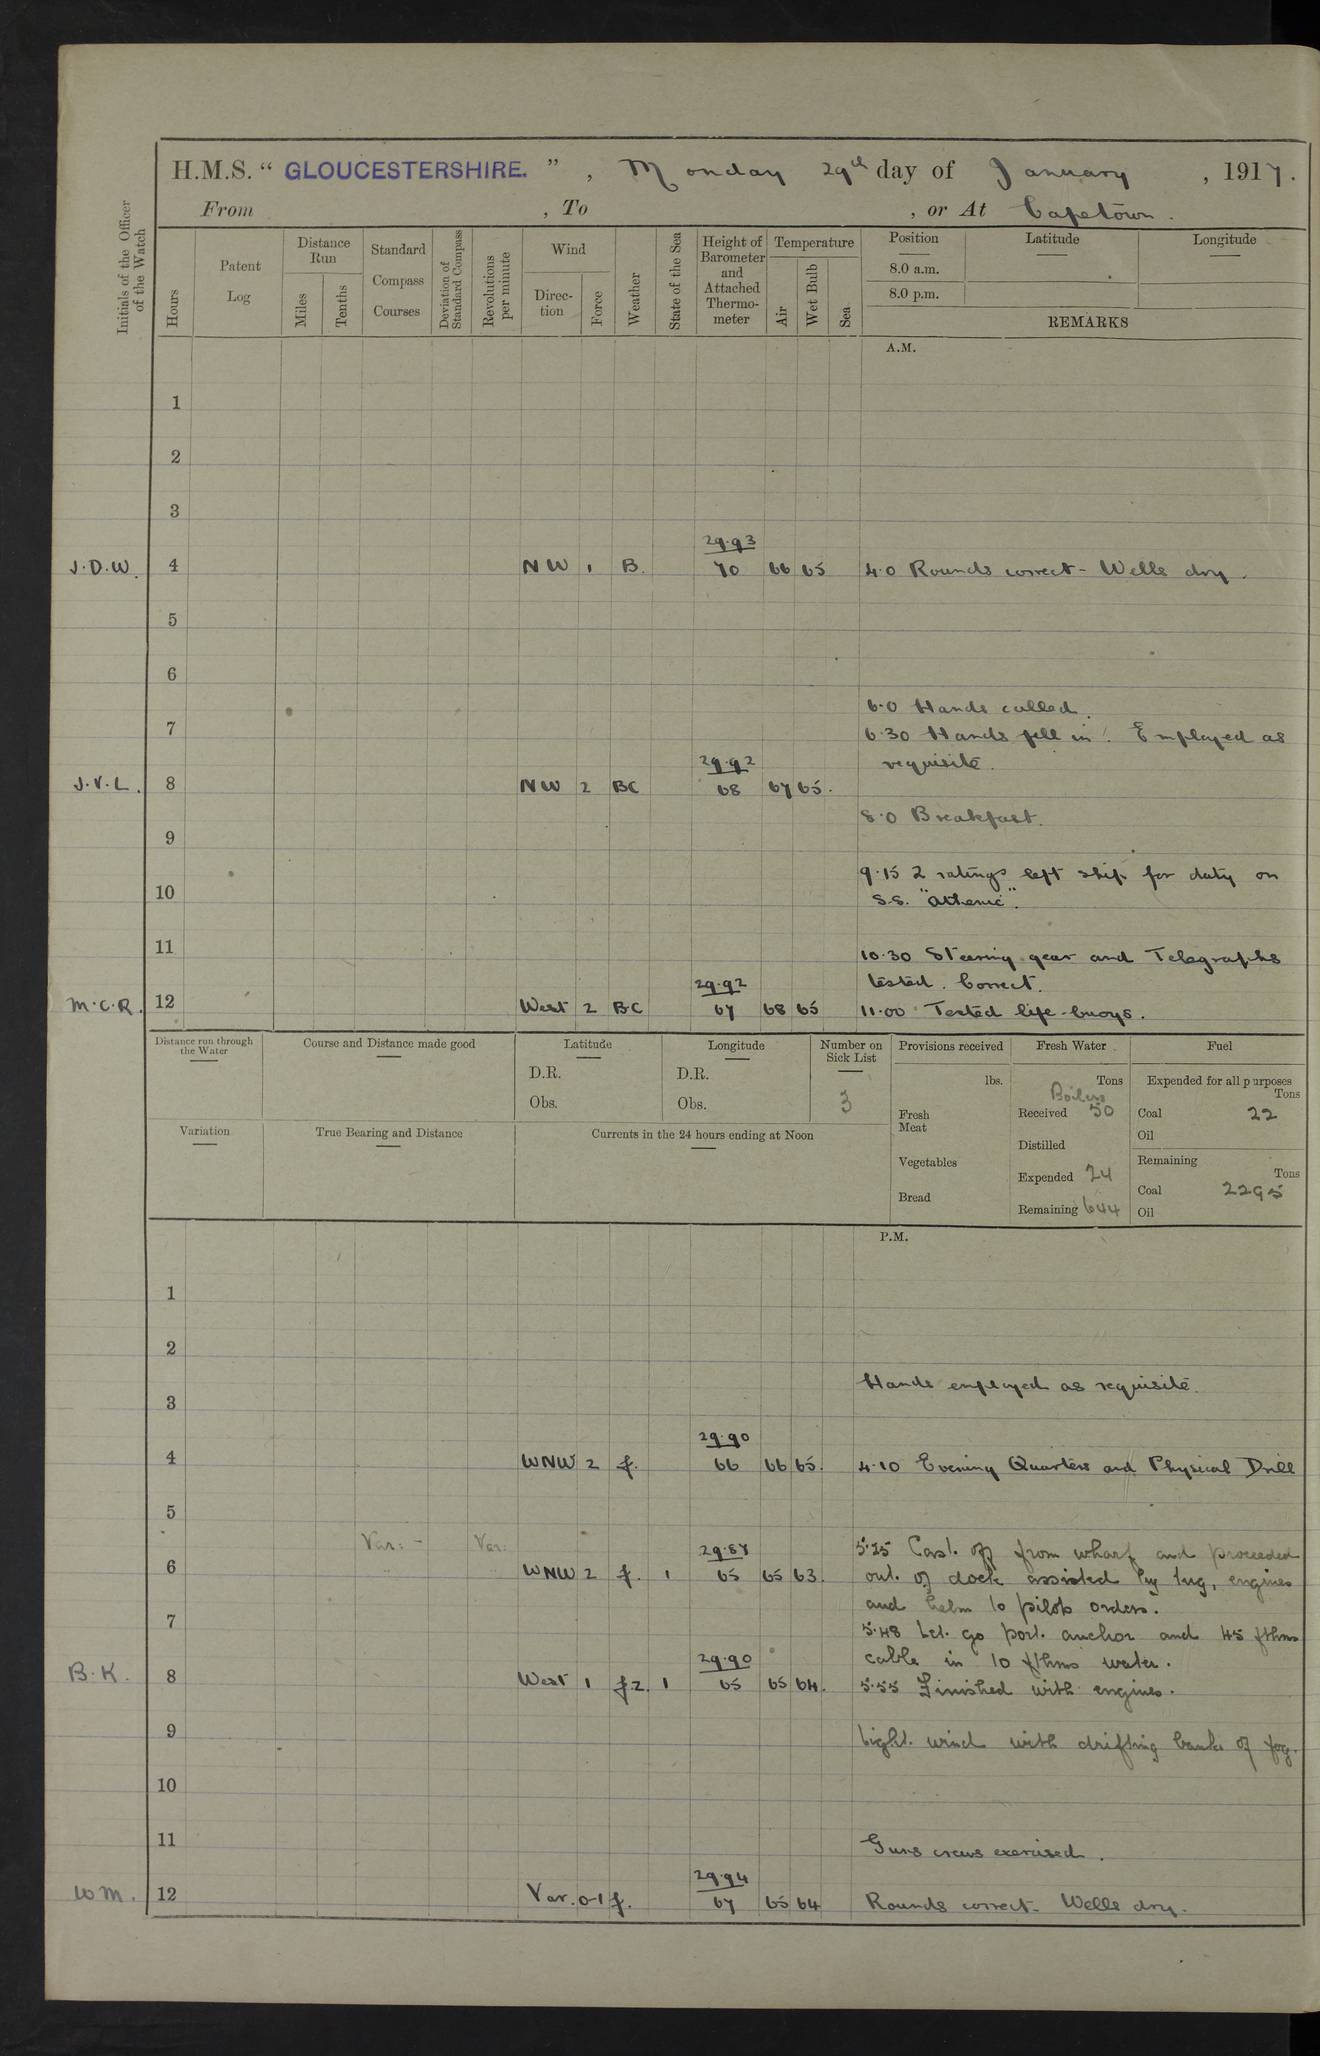 H.M.S. “ GLOUCESTERSHIRE. ”, Monday 29th day of January, 1917.
From , To , or At Capetown.
Initials of the Officer of the Watch
Hours
Patent Log
Distance Run
Miles
Tenths
Standard Compass Courses
Deviation of Standard Compass
Revolutions per minute
Wind
Direc-tion
Force
Weather
State of the Sea
Height of Barometer and Attached Thermo-meter
Temperature
Air
Wet Bulb
Sea
Position
Latitude
Longitude
8.0 a.m.
8.0 p.m.
REMARKS
A.M.
1
2
3
29.93
J.D.W. 4 NW 1 B. 70 66 65 4.0 Rounds correct - Wells dry.
5
6
6.0 Hands called.
7
6.30 Hands fell in. Employed as
29.92 requisite.
J.V.L. 8 NW 2 BC 68 67 65.
8.0 Breakfast.
9
9.15 2 ratings left ship for duty on
10
S.S. "Athenic".
11
10.30 Steering gear and Telegraphs
29.92 tested. Correct.
M.C.R. 12 West 2 BC 67 68 65 11.00 Tested life-buoys.
Distance run through the Water
Course and Distance made good
Latitude
D.R.
Obs.
Longitude
D.R.
Obs.
Number on Sick List
3
Provisions received
lbs.
Fresh Meat
Vegetables
Bread
Fresh Water
Tons
Boilers
Received 50
Distilled
Expended 24
Remaining 644
Fuel
Expended for all purposes
Tons
Coal 22
Oil
Remaining
Tons
Coal 2295
Oil
Variation
True Bearing and Distance
Currents in the 24 hours ending at Noon
P.M.
1
2
Hands employed as requisite.
3
29.90
4 WNW 2 f. 66 66 65. 4.10 Evening Quarters and Physical Drill
5
Var: - Var: 29.87 5.25 Cast off from wharf and proceeded
6 WNW 2 f. 1 65 65 63. out of dock assisted by tug, engines
and helm to pilots orders.
7
5.48 Let go port anchor and 45 fthms
29.90 cable in 10 fthms water.
B.K. 8 West 1 fz. 1 65 65 64. 5.55 Finished with engines.
9
Light wind with drifting banks of fog.
10
11
Guns crews exercised.
29.94
WM. 12 Var. 0-1 f. 67 65 64 Rounds correct - Wells dry.